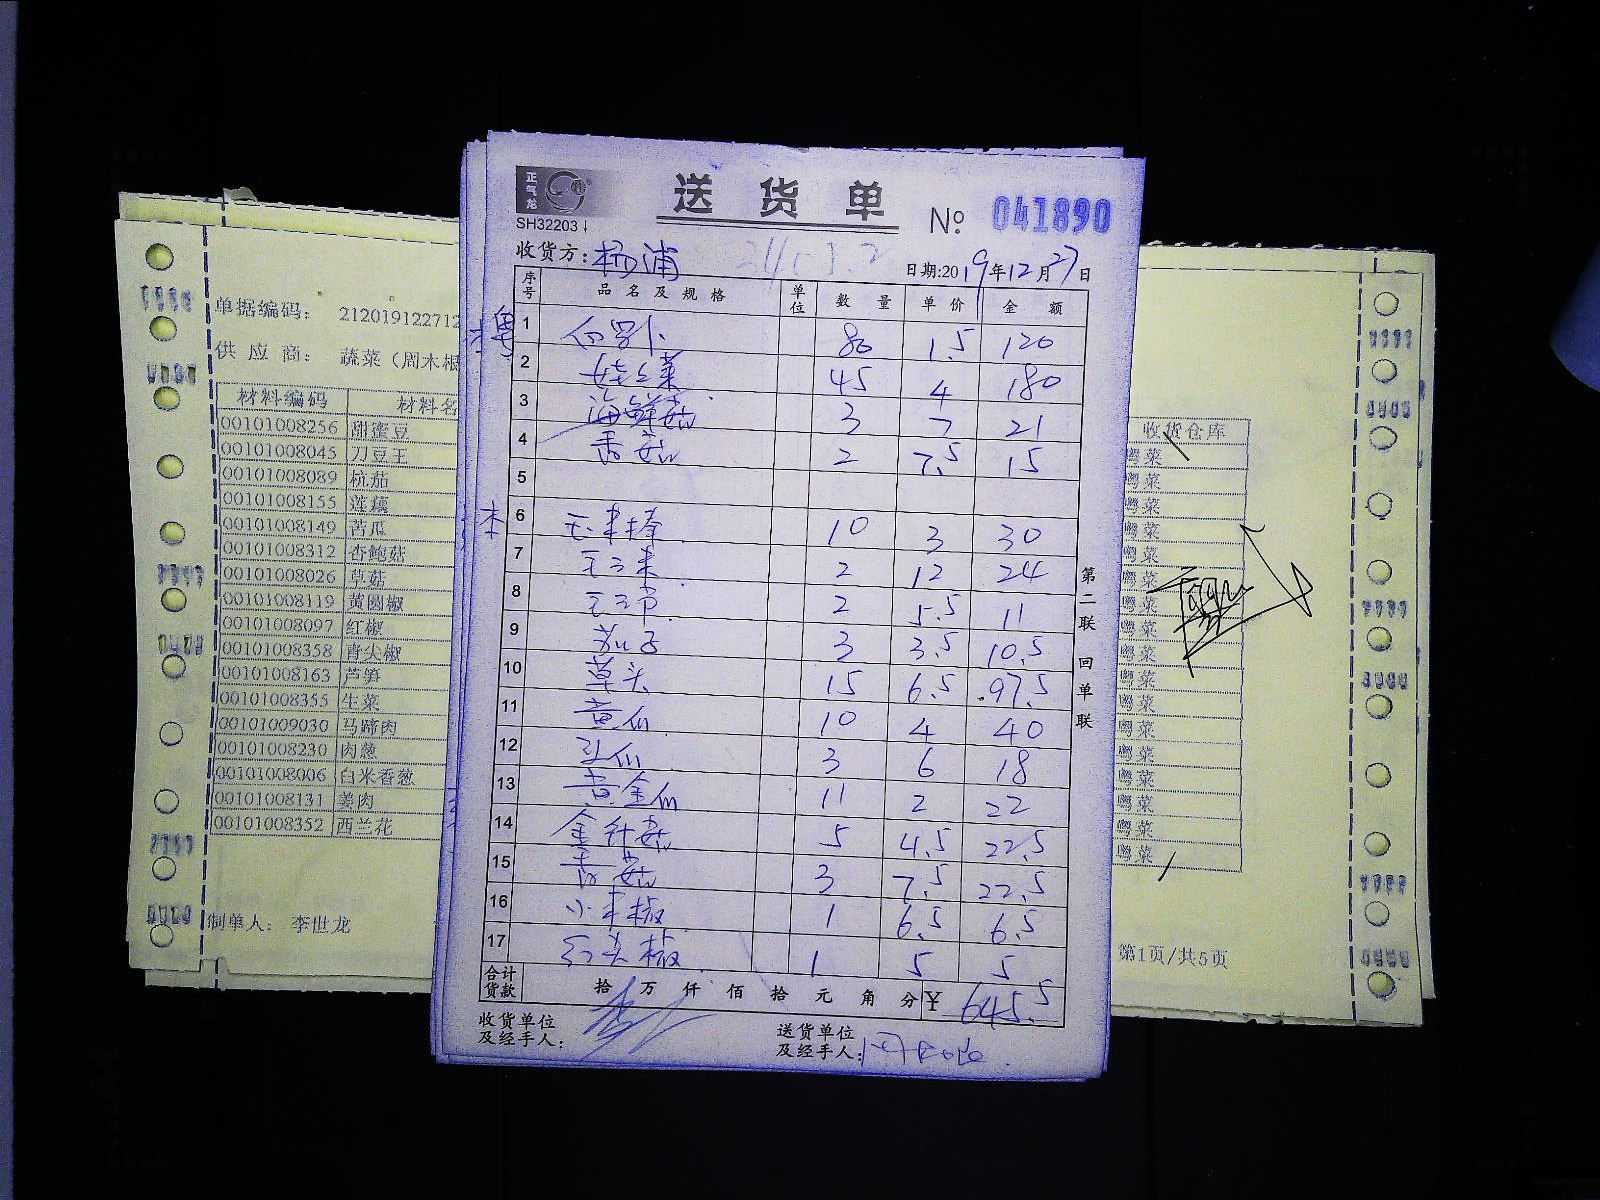 正气龙
SH32203
送货单
№ 041890
收货方: 杨浦
日期:2019年12月27日
序号 品名及规格 单位 数量 单价 金额
1 白罗卜 80 1.5 120
2 娃娃菜 45 4 180
3 海鲜菇 3 7 21
4 香菇 2 7.5 15
5
6 玉米棒 10 3 30
7 玉米 2 12 24
8 2 5.5 11
9 茄子 3 3.5 10.5
10 草头 15 6.5 97.5
11 黄瓜 10 4 40
12 瓜 3 6 18
13 黄金瓜 11 2 22
14 金针菇 5 4.5 22.5
15 香菇 3 7.5 22.5
16 小米椒 1 6.5 6.5
17 尖椒 1 5 5
合计货款 拾万仟佰拾元角分 ¥ 645.5
收货单位及经手人:
送货单位及经手人:
第二联 回单联
单据编码: 212019122712
供应商: 蔬菜（周木根
材料编码 材料名
00101008256 甜蜜豆
00101008045 刀豆王
00101008089 杭茄
00101008155 莲藕
00101008149 苦瓜
00101008312 杏鲍菇
00101008026 草菇
00101008119 黄圆椒
00101008097 红椒
00101008358 青尖椒
00101008163 芦笋
00101008355 生菜
00101009030 马蹄肉
00101008230 肉葱
00101008006 白米香葱
00101008131 姜肉
00101008352 西兰花
制单人: 李世龙
收货仓库
粤菜
粤菜
粤菜
粤菜
粤菜
粤菜
粤菜
粤菜
粤菜
粤菜
粤菜
粤菜
粤菜
粤菜
粤菜
粤菜
粤菜
第1页/共5页